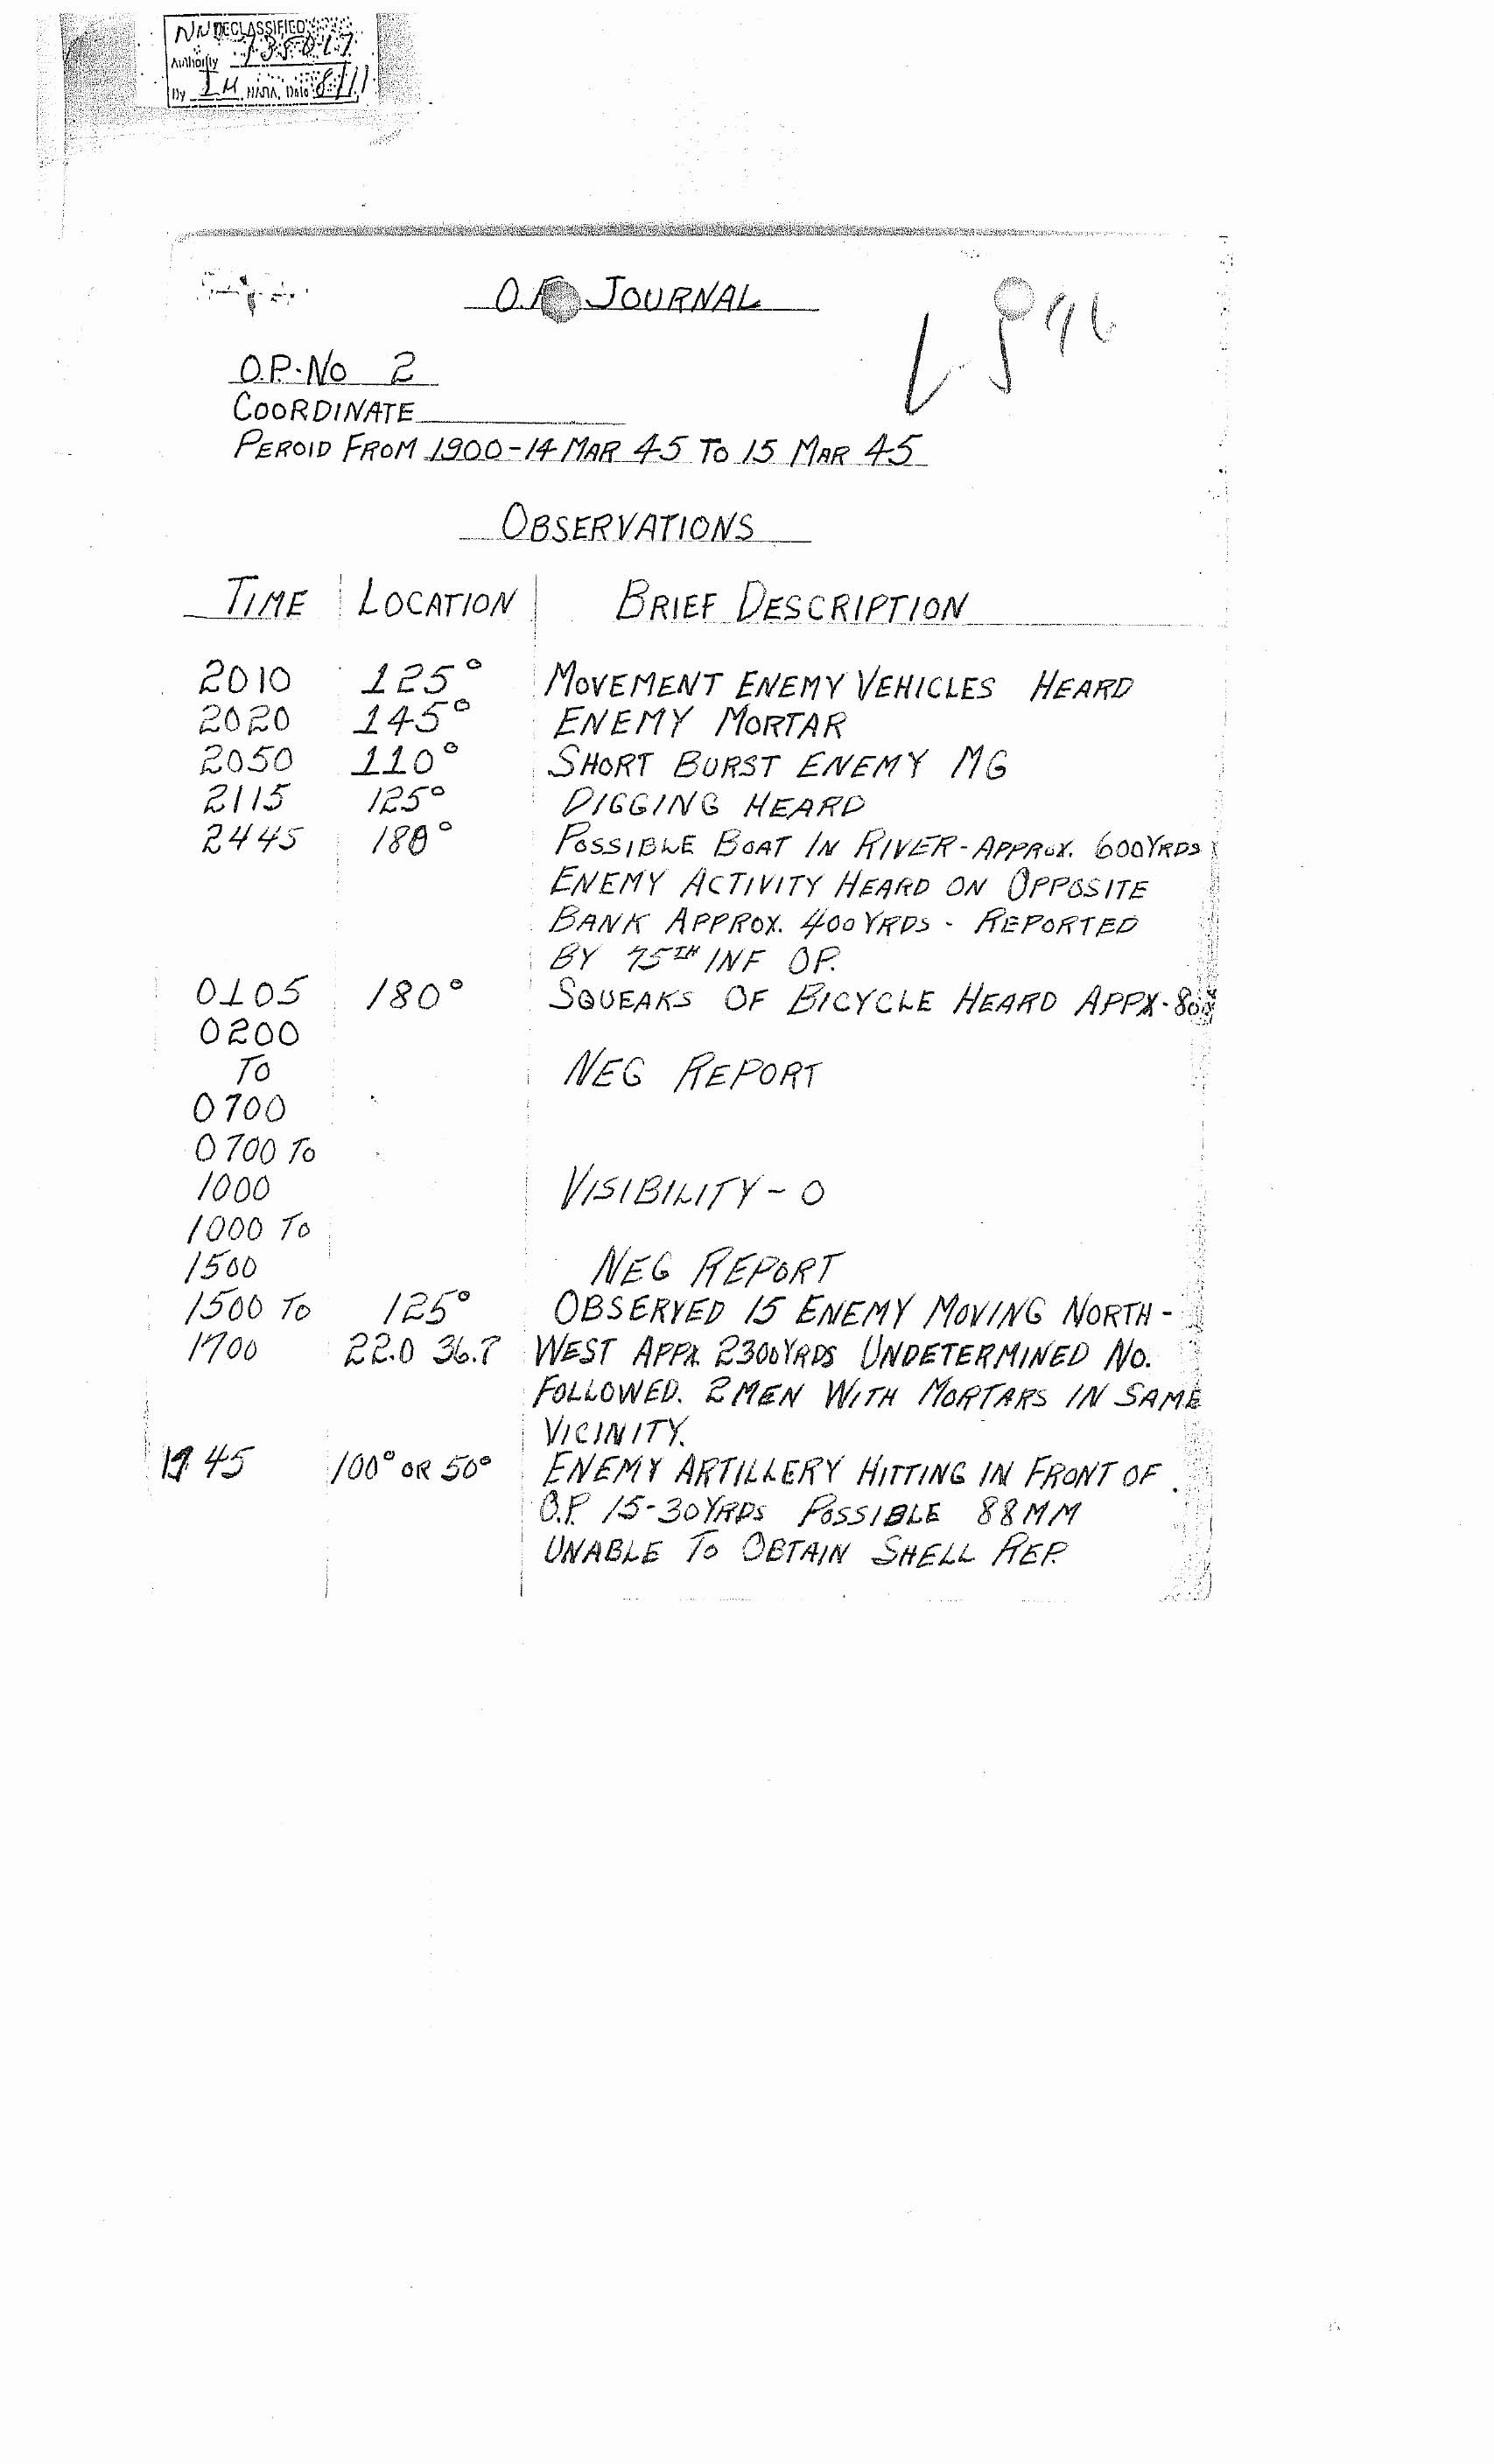 NN DECLASSIFIED
Authority 735017
By IH NARA, Date 8/11
O.P. JOURNAL
O.P. No 2
COORDINATE
PEROID FROM 1900-14 MAR 45 TO 15 MAR 45
OBSERVATIONS
TIME LOCATION BRIEF DESCRIPTION
2010 125° MOVEMENT ENEMY VEHICLES HEARD
2020 145° ENEMY MORTAR
2050 110° SHORT BURST ENEMY MG
2115 125° DIGGING HEARD
2445 180° POSSIBLE BOAT IN RIVER-APPROX. 600YRDS
ENEMY ACTIVITY HEARD ON OPPOSITE
BANK APPROX. 400YRDS - REPORTED
BY 75TH INF OP.
0105 180° SQUEAKS OF BICYCLE HEARD APPX-
0200
TO NEG REPORT
0700
0700 TO
1000 VISIBILITY - 0
1000 TO
1500 NEG REPORT
1500 TO 125° OBSERVED 15 ENEMY MOVING NORTH-
1700 22.0 36.7 WEST APPX. 2300YRDS UNDETERMINED NO.
FOLLOWED. 2 MEN WITH MORTARS IN SAME
VICINITY.
1945 100° OR 50° ENEMY ARTILLERY HITTING IN FRONT OF
O.P. 15-30YRDS POSSIBLE 88MM
UNABLE TO OBTAIN SHELL REP.